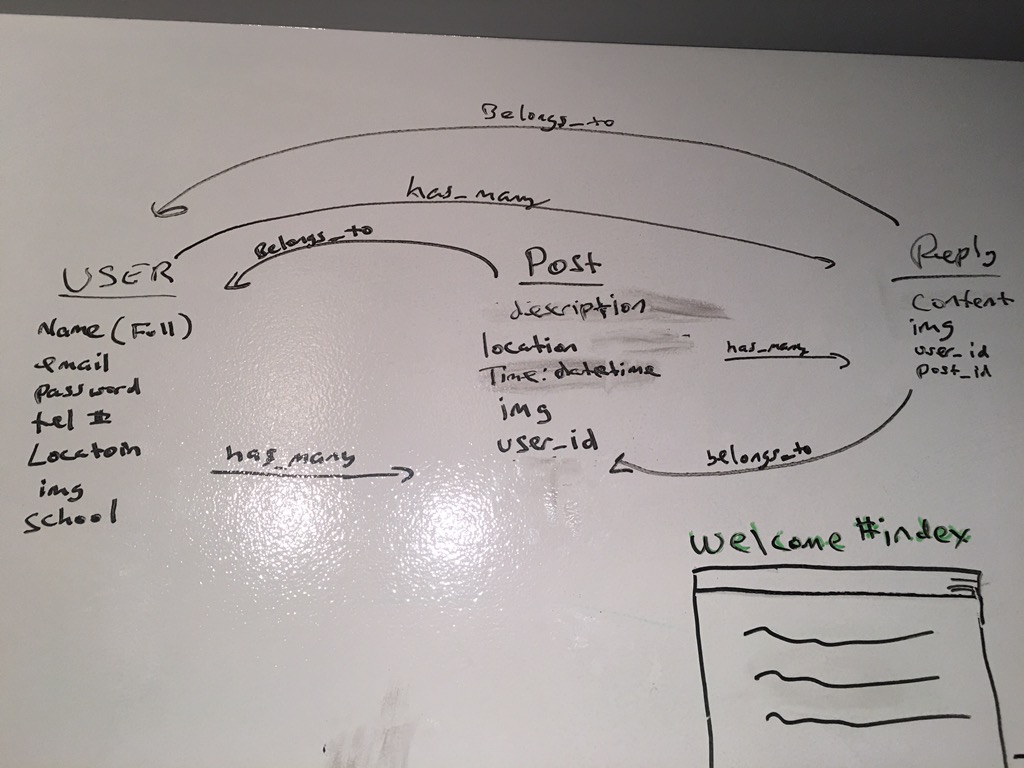 Belongs_to
has_many
Belongs_to
USER
Name (Full)
email
password
tel #
Location
img
school
has_many
Post
description
location
Time: datetime
img
user_id
has_many
belongs_to
Reply
Content
img
user_id
post_id
welcome #index